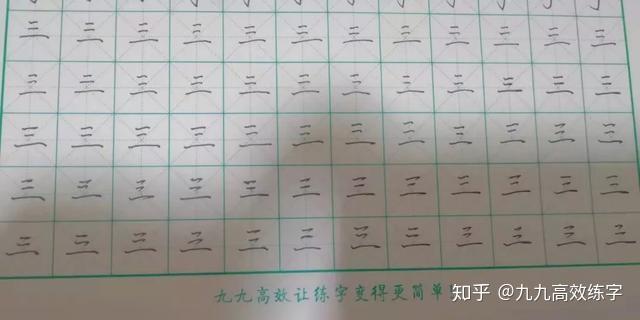 三三三三三三三三三三三三
三三三三三三三三三三三三
三三三三三三三三三三三三
三三三三三三三三三三三三
三三三三三三三三三三三三
九九高效让练字变得更简单
知乎 @九九高效练字